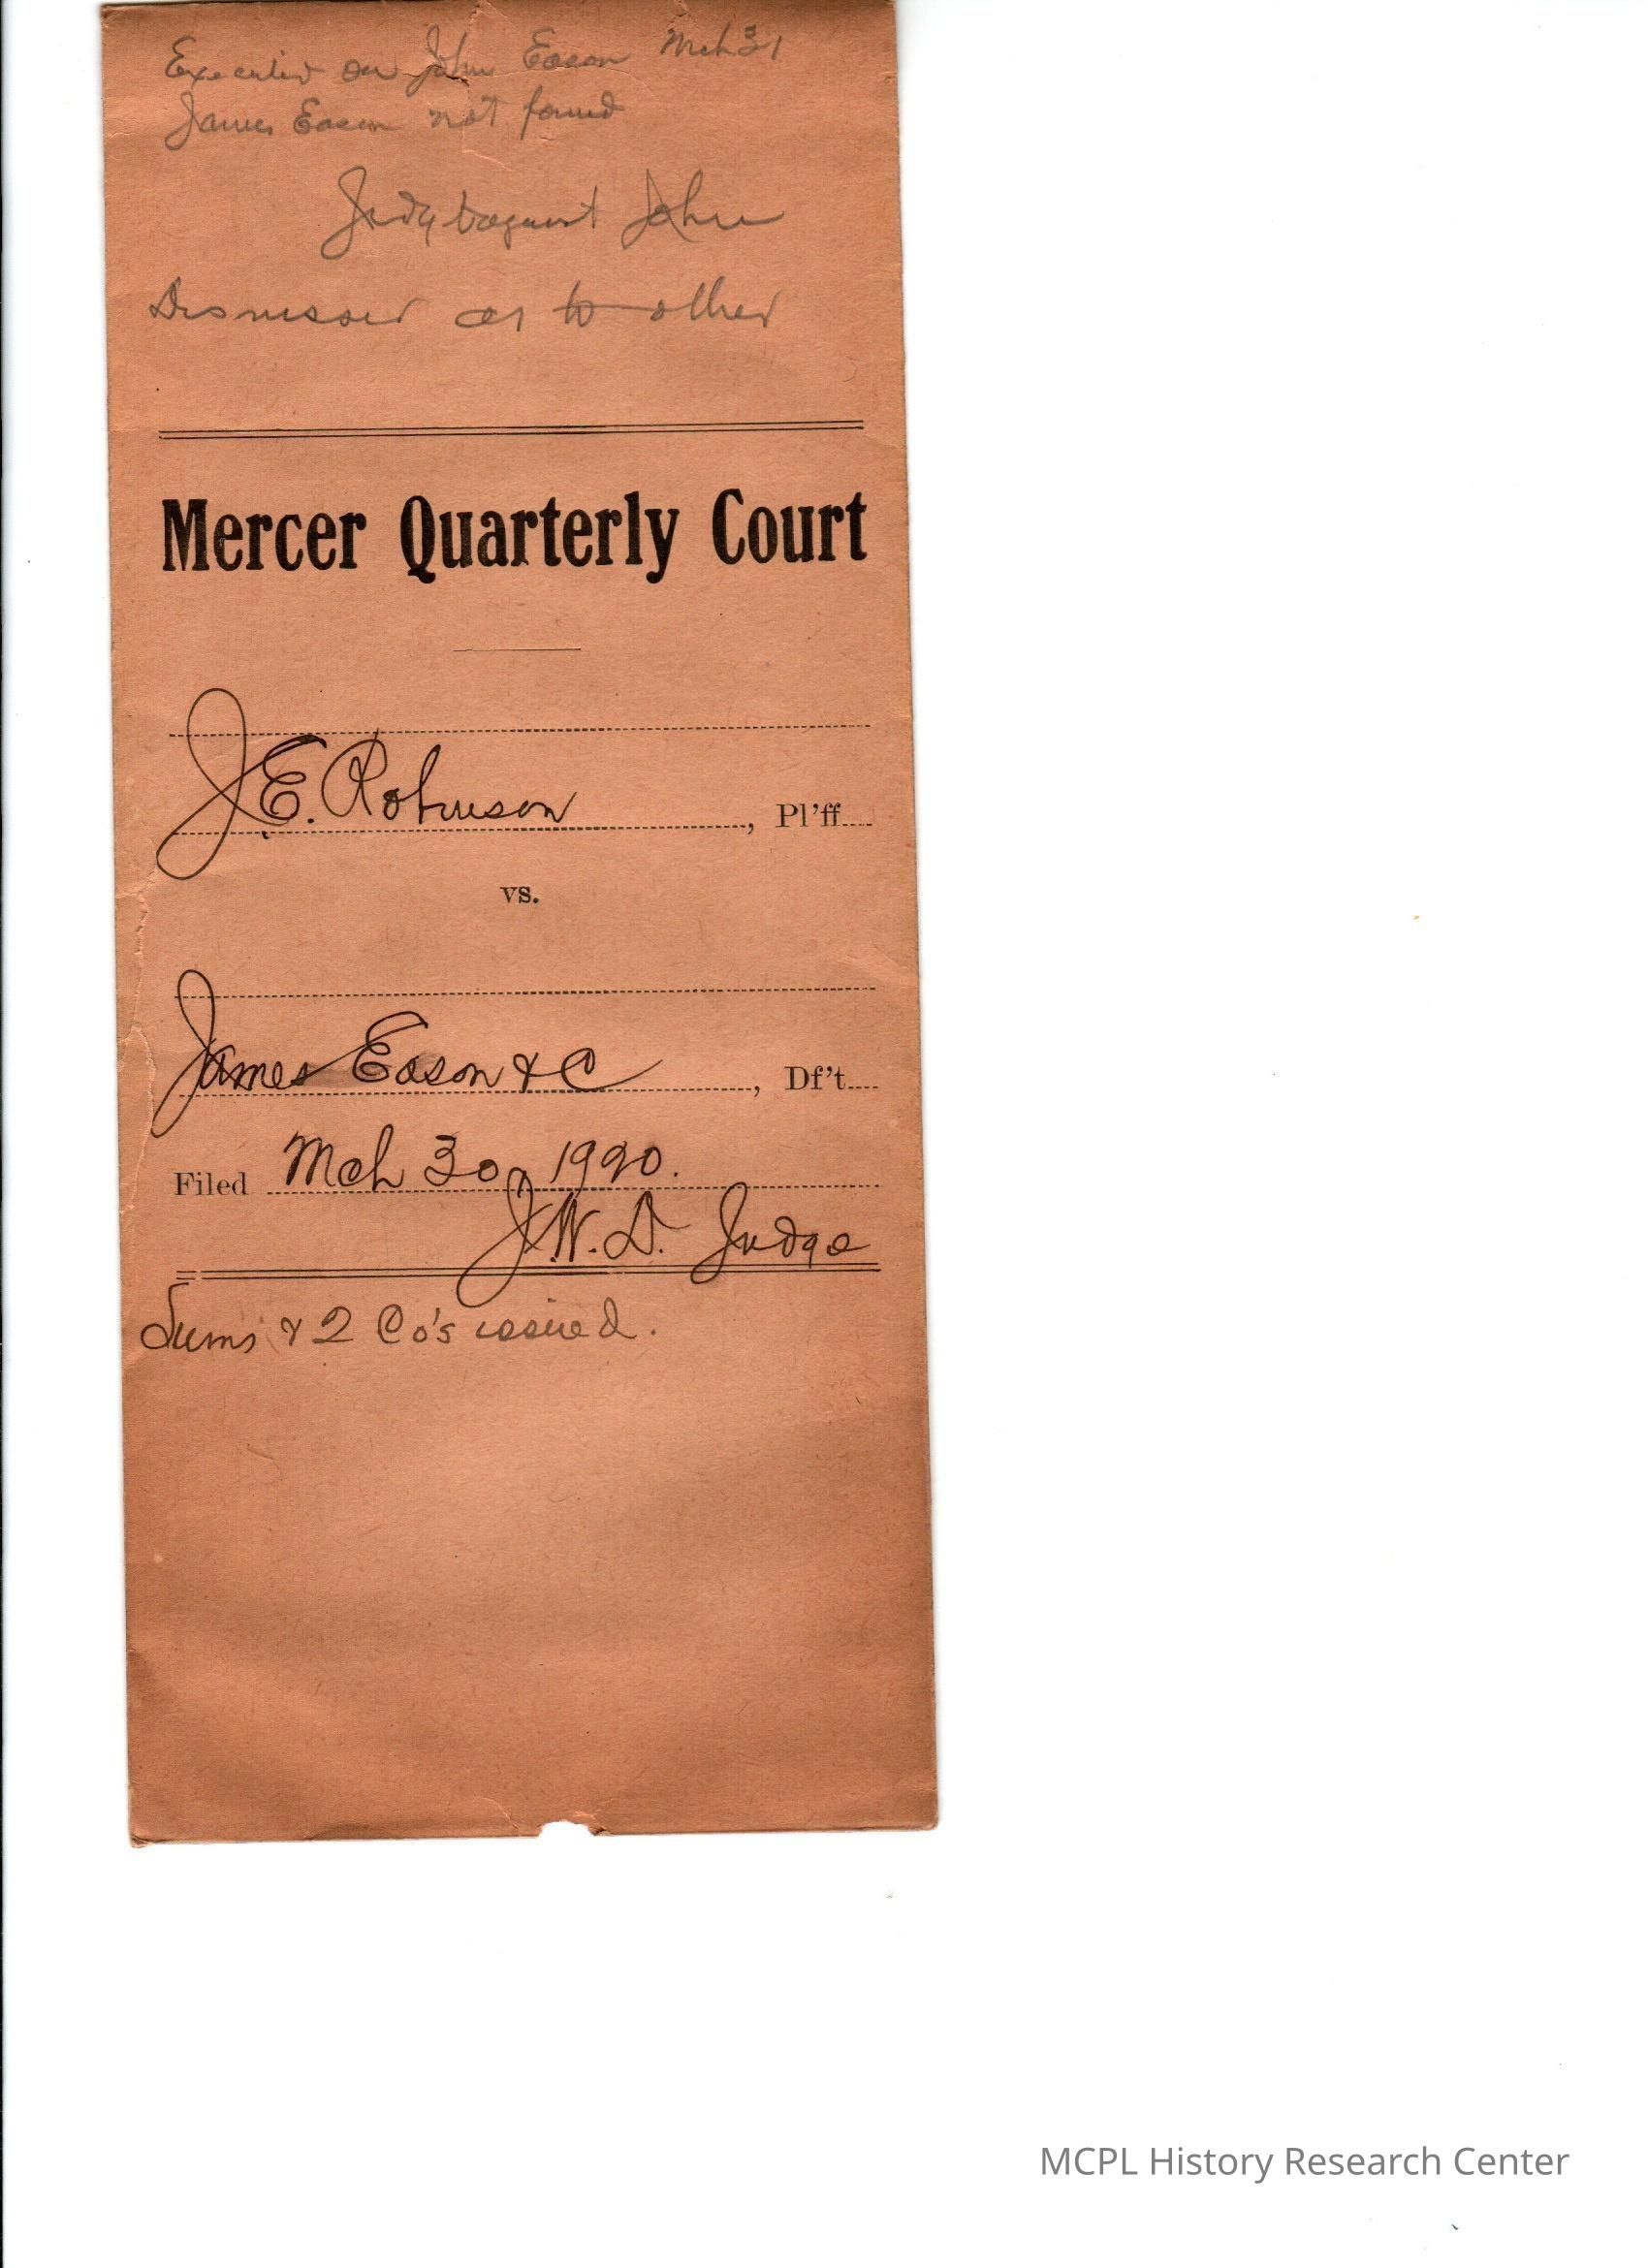 Executed on John Eason Mch 31
James Eason not found
Judgt against John
Dismissed as to other
Mercer Quarterly Court
J.E. Robinson, Pl'ff
vs.
James Eason & C, Df't
Filed Mch 30, 1920.
J.W.D. Judge
Sums & 2 Co's issued.
MCPL History Research Center